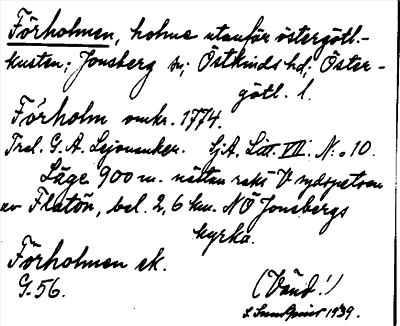 Förholmen, holme utanför östergötl.-
kusten; Jonsberg sn; Östkinds hd; Öster-
götl. l.
Förholm omkr. 1774.
Tral. G. A. Lejonanker. SjA. Litt. VII. N:o 10.
Läge 900 m. nästan rakt V sydspetsen
av Flatön, bel. 2,6 km. NÖ Jonsbergs
kyrka.
Förholmen ek.
G. 56.
(Vänd!)
1939.